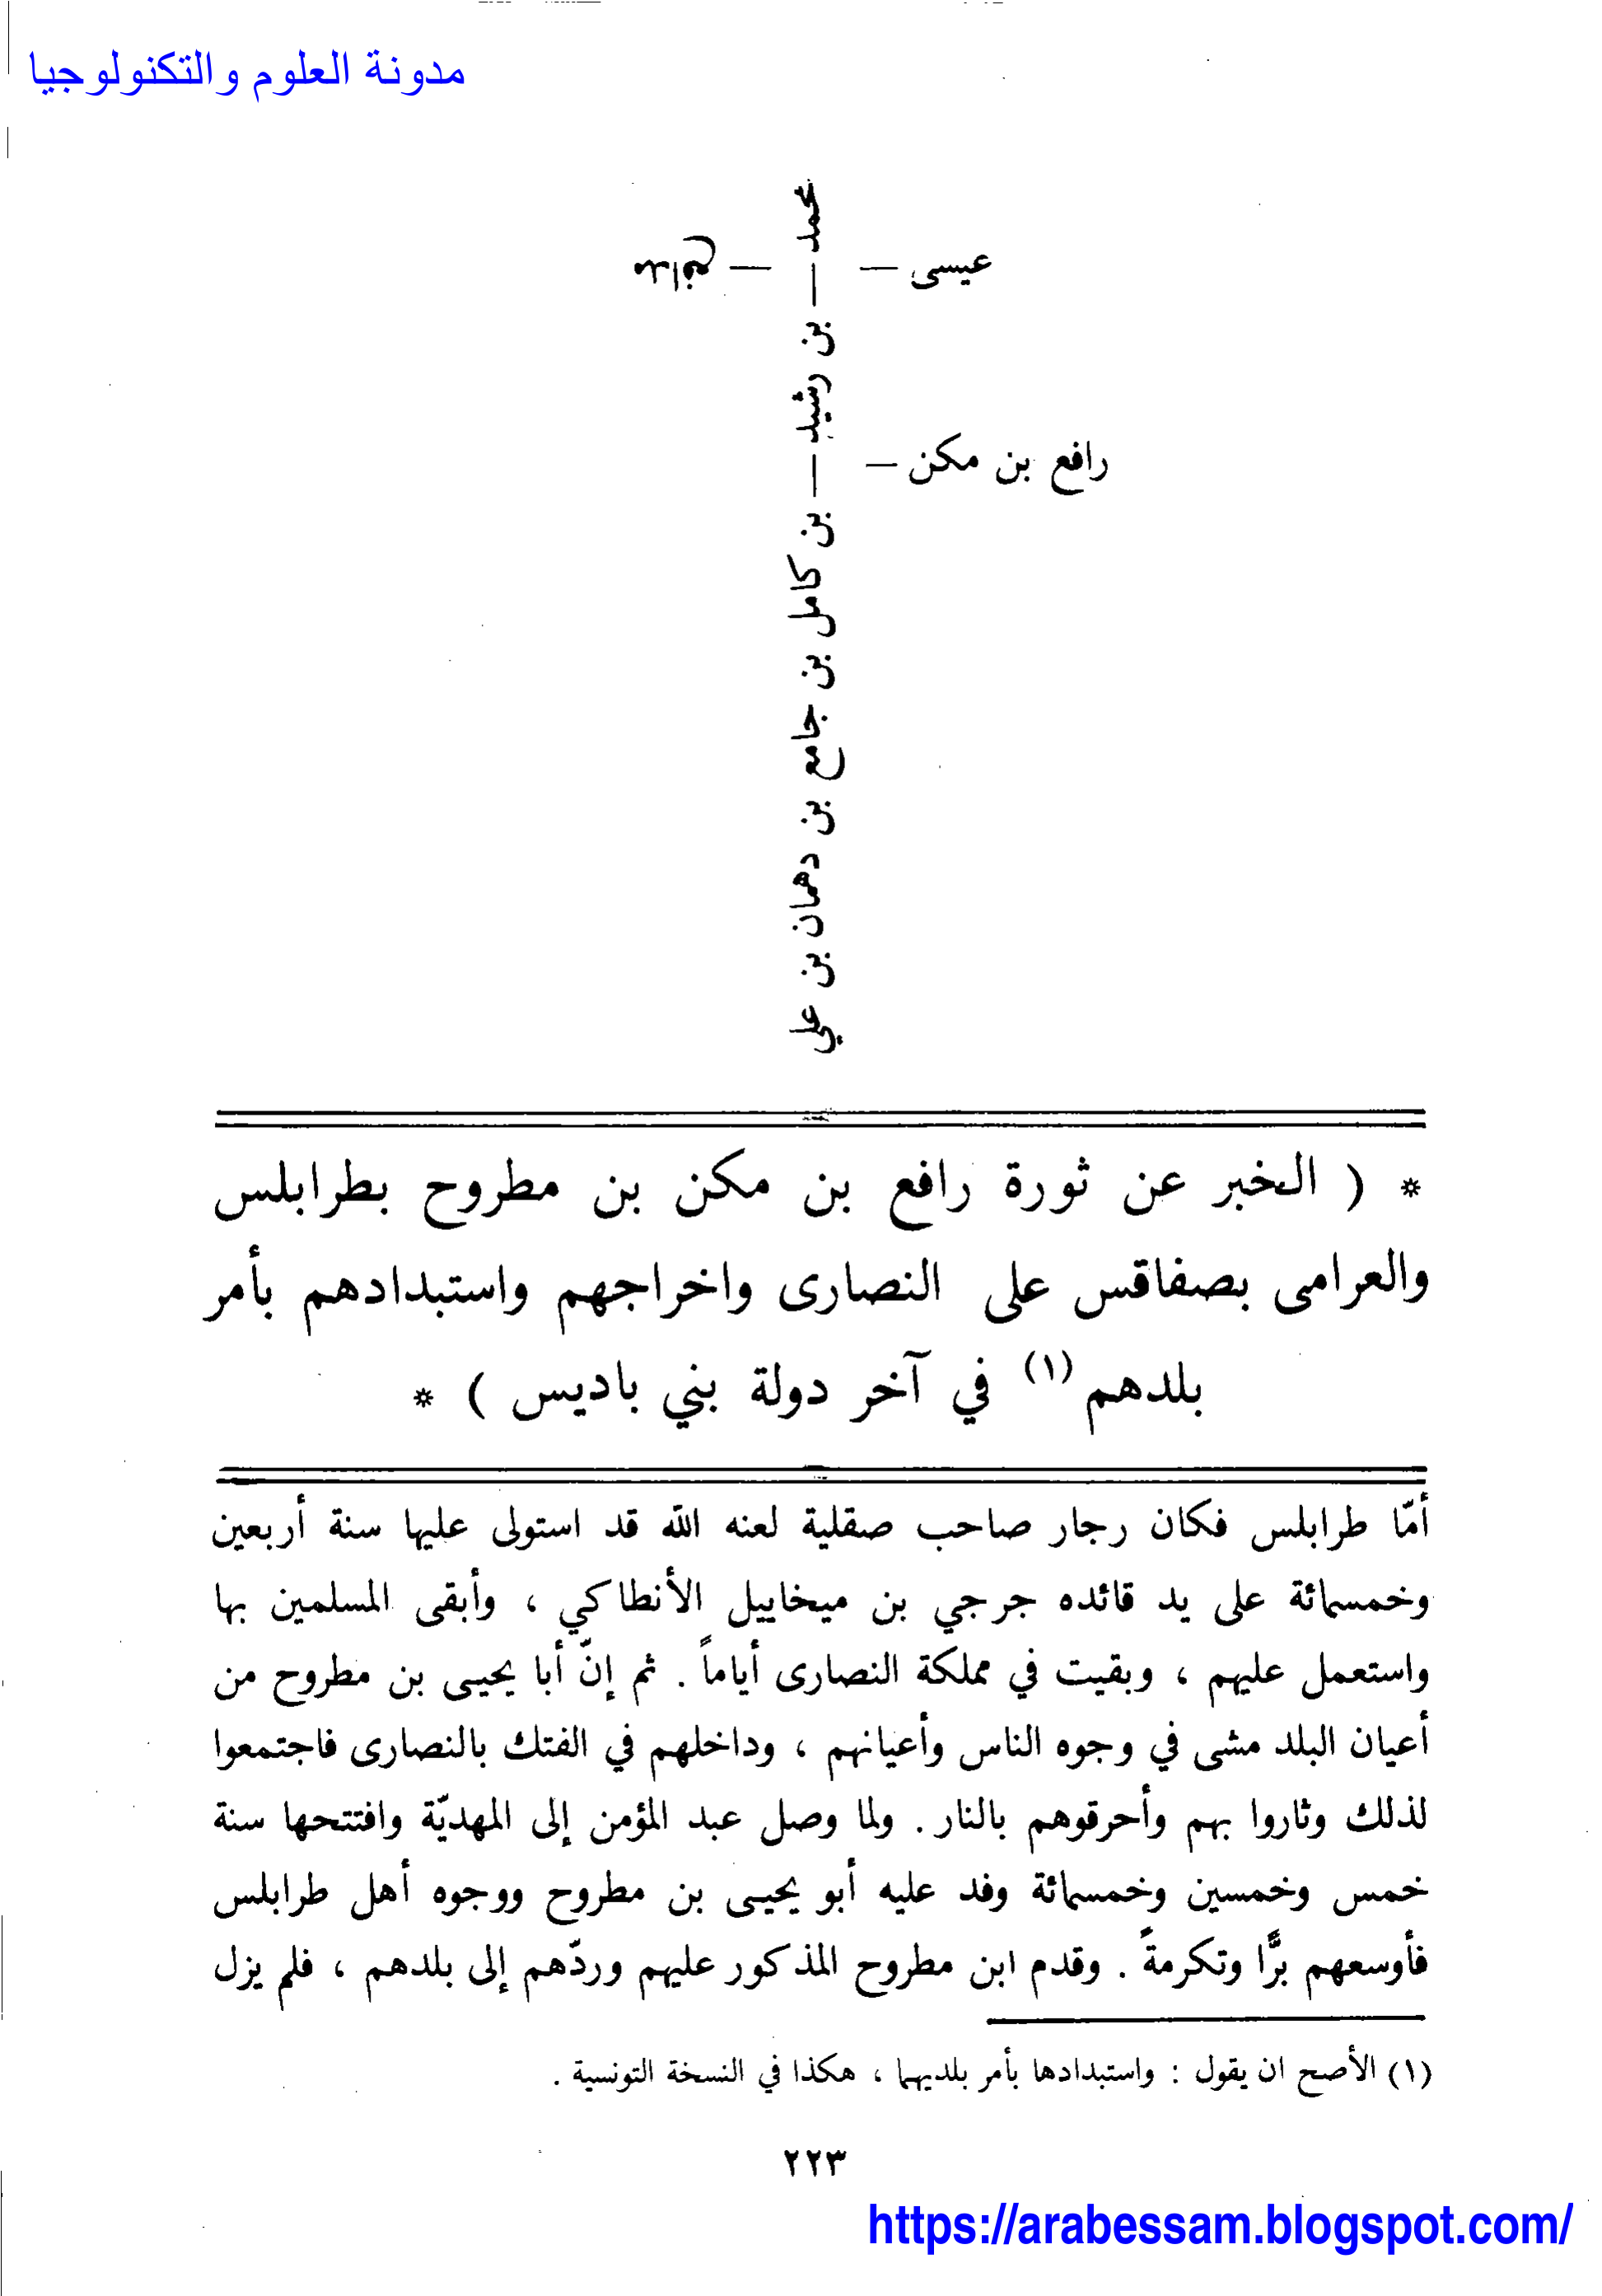 مدونة العلوم والتكنولوجيا
عيسى — محمد — مدافع
بن رشيد
رافع بن مكن —
بن كامل بن جامع بن دهمان بن علي
* ( الخبر عن ثورة رافع بن مكن بن مطروح بطرابلس
والعرامى بصفاقس على النصارى واخراجهم واستبدادهم بأمر
بلدهم (١) في آخر دولة بني باديس ) *
أمّا طرابلس فكان رجار صاحب صقلية لعنه الله قد استولى عليها سنة أربعين
وخمسمائة على يد قائده جرجي بن ميخاييل الأنطاكي ، وأبقى المسلمين بها
واستعمل عليهم ، وبقيت في مملكة النصارى أياماً . ثم إنّ أبا يحيى بن مطروح من
أعيان البلد مشى في وجوه الناس وأعيانهم ، وداخلهم في الفتك بالنصارى فاجتمعوا
لذلك وثاروا بهم وأحرقوهم بالنار . ولما وصل عبد المؤمن إلى المهديّة وافتتحها سنة
خمس وخمسين وخمسمائة وفد عليه أبو يحيى بن مطروح ووجوه أهل طرابلس
فأوسعهم برًّا وتكرمةً . وقدم ابن مطروح المذكور عليهم وردّهم إلى بلدهم ، فلم يزل
(١) الأصح ان يقول : واستبدادها بأمر بلديهما ، هكذا في النسخة التونسية .
٢٢٣
https://arabessam.blogspot.com/